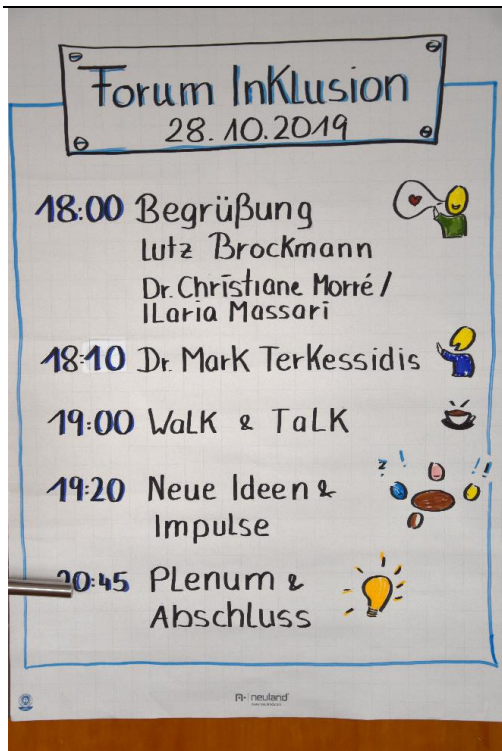 Forum Inklusion
28.10.2019
18:00 Begrüßung
Lutz Brockmann
Dr. Christiane Morré /
Ilaria Massari
18:10 Dr. Mark Terkessidis
19:00 Walk & Talk
19:20 Neue Ideen &
Impulse
20:45 Plenum &
Abschluss
neuland